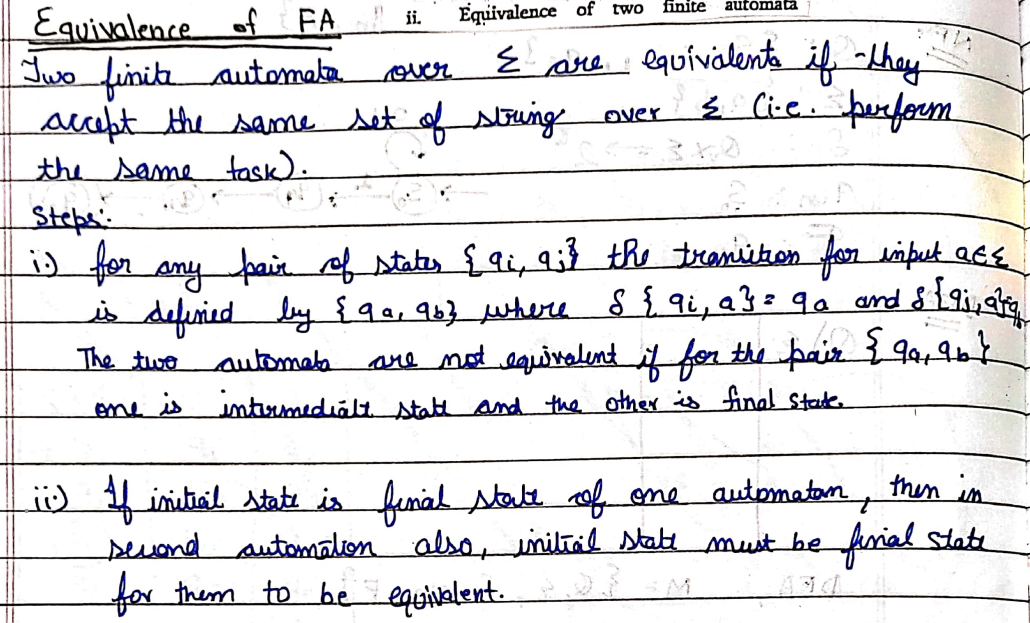 Equivalence of FA ii. Equivalence of two finite automata
Two finite automata over Σ are equivalents if they
accept the same set of string over Σ (i.e. perform
the same task).
Steps:
i.) for any pair of states {qi, qj} the transition for input a∈Σ
is defined by {qa, qb} where δ {qi, a} = qa and δ {qj, a} = qb
The two automata are not equivalent if for the pair {qa, qb}
one is intermediate state and the other is final state.
ii.) If initial state is final state of one automaton, then in
second automation also, initial state must be final state
for them to be equivalent.